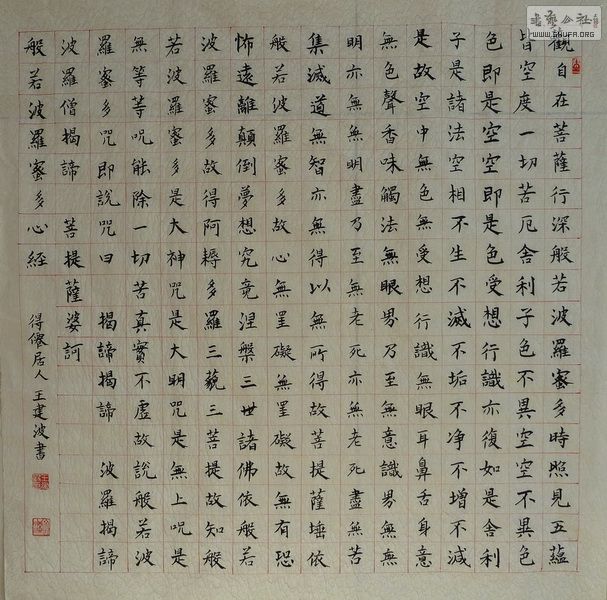 觀自在菩薩行深般若波羅蜜多時照見五蘊
皆空度一切苦厄舍利子色不異空空不異色
色即是空空即是色受想行識亦復如是舍利
子是諸法空相不生不滅不垢不净不增不減
是故空中無色無受想行識無眼耳鼻舌身意
無色聲香味觸法無眼界乃至無意識界無無
明亦無無明盡乃至無老死亦無老死盡無苦
集滅道無智亦無得以無所得故菩提薩埵依
般若波羅蜜多故心無罣礙無罣礙故無有恐
怖遠離顛倒夢想究竟涅槃三世諸佛依般若
波羅蜜多故得阿耨多羅三藐三菩提故知般
若波羅蜜多是大神咒是大明咒是無上咒是
無等等呪能除一切苦真實不虛故說般若波
羅蜜多咒即說咒曰 揭諦揭諦 波羅揭諦
波羅僧揭諦 菩提薩婆訶
般若波羅蜜多心經
得僊居人王建波書
WWW.SHUFA.ORG